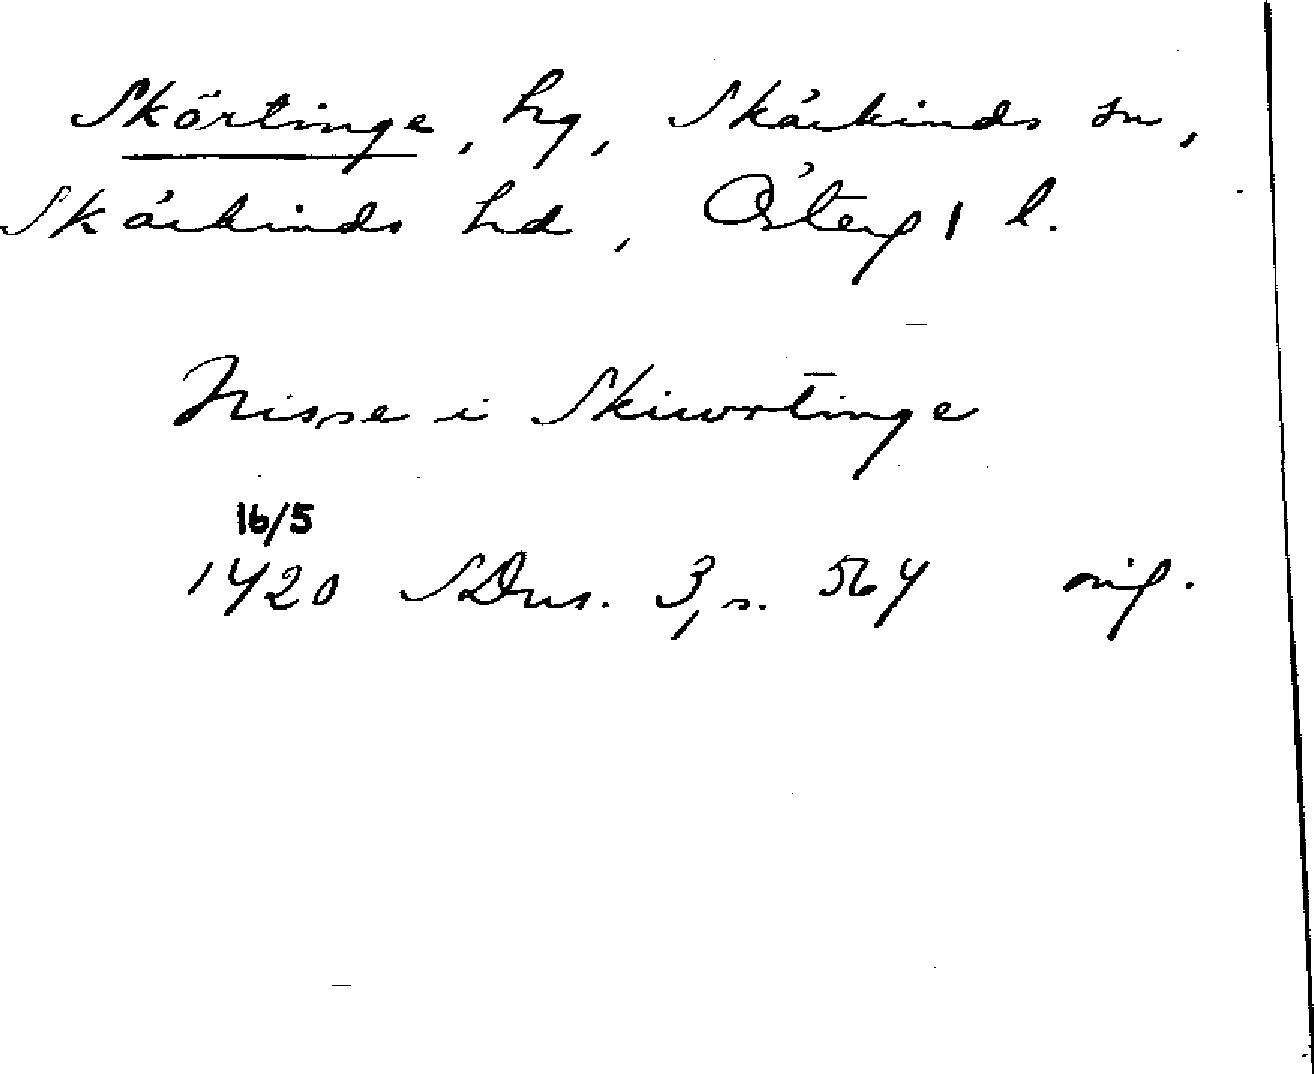 Skörtinge, hg, Skärkinds sn,
Skärkinds hd, Österg l.
Nisse i Skiwrtinge
16/5
1420 SDns. 3, s. 564 orig.